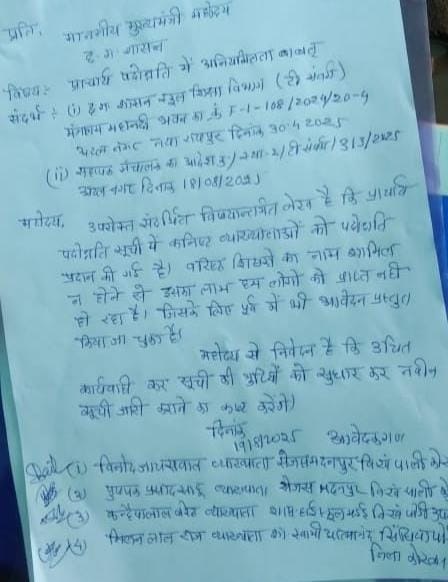 प्रति,
माननीय मुख्यमंत्री महोदय
छ.ग. शासन
विषय:- प्राचार्य पदोन्नति में अनियमितता बाबत्
संदर्भ:- (i) छ.ग. शासन स्कूल शिक्षा विभाग (टी संवर्ग)
मंत्रालय महानदी भवन का क्रं F-1-108/2024/20-4
अटल नगर नया रायपुर दिनांक 30.4.2025
(ii) संचालक का आदेश क्र./ /2025
अटल नगर दिनांक
महोदय,
उपरोक्त संदर्भित विषयान्तर्गत लेख है कि प्राचार्य
पदोन्नति सूची में कनिष्ट व्याख्याताओं को पदोन्नति
प्रदान की गई है। वरिष्ट शिक्षकों का नाम शामिल
न होने से इसका लाभ हम लोगों को प्राप्त नहीं
हो रहा है। जिसके लिए पूर्व में भी आवेदन प्रस्तुत
किया जा चुका है।
महोदय से निवेदन है कि उचित
कार्यवाही कर सूची की त्रुटियों को सुधार कर नवीन
सूची जारी कराने का कष्ट करेंगे।
दिनांक
19/8/2025 आवेदकगण
(1) विनोद जायसवाल व्याख्याता सेजस मदनपुर वि.खं पाली
(2) पुष्पक प्रसाद साहू व्याख्याता सेजस मदनपुर वि.खं पाली
(3) कन्हैयालाल व्याख्याता शास. हाई स्कूल वि.खं
(4) मिलन लाल व्याख्याता स्वामी आत्मानंद
जिला कोरबा